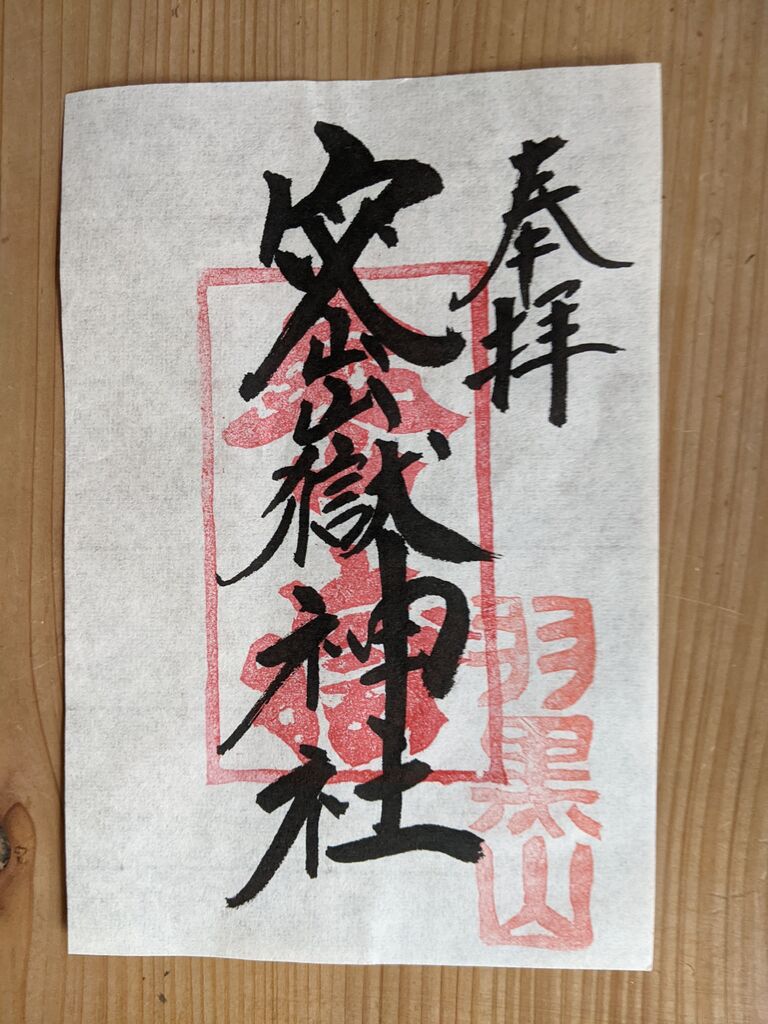 奉拝
羽黒山
密嶽神社